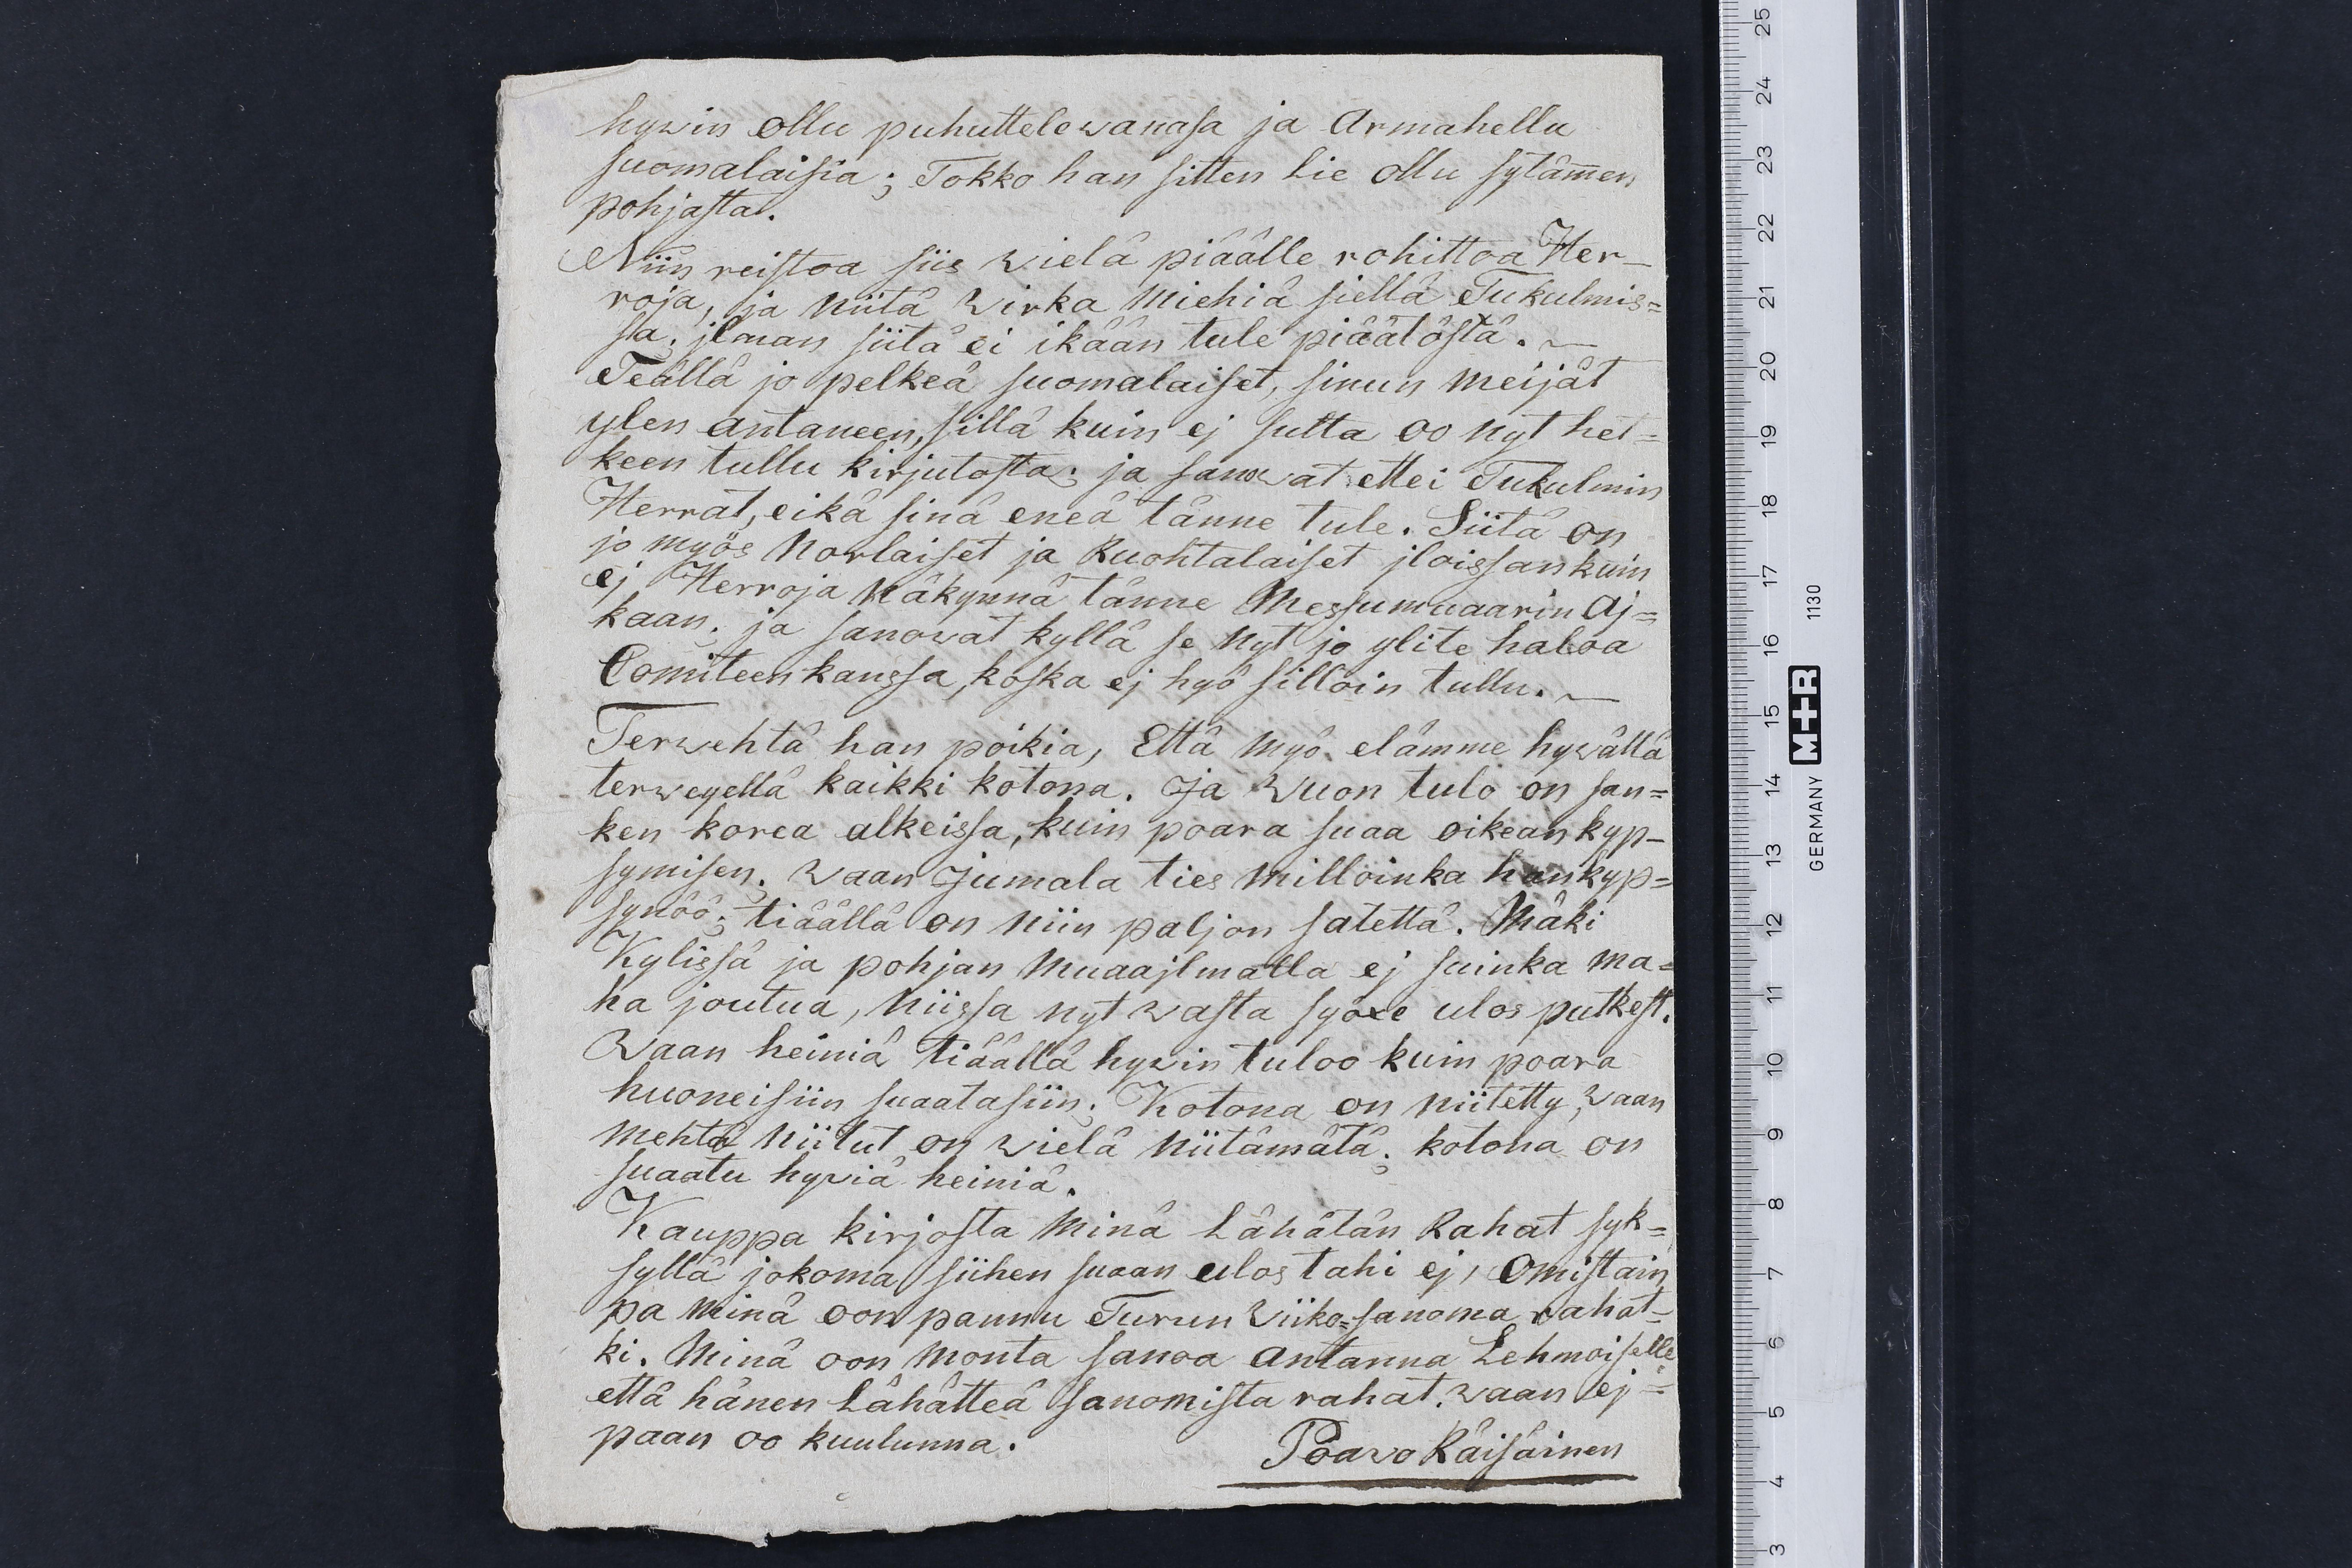 hywin ollu puhuttelewanasa ja Armahellu
suomalaisia; Tokko han sitten Lie ollu sytämen
pohjasta.
Niin reistoa siis wielä piäälle rohittoa Her-
roja, ja niitä wirka Miehiä siellä Tukulmis=
sa; jlman siitä ei ikään tule piäätöstä.
Teällä jo pelkeä suomalaiset, sinun meijät
ylen antaneen, sillä kuin ej sulta oo nyt het=
keen tullu kirjutosta; ja sanowat ettei Tukulmin
Herrat, eikä sinä eneä tänne tule. Siitä on
jo myös Norlaiset ja Ruohtalaiset jloissan kuin
ej Herroja Näkynnä tänne Messumuaarin Aj=
kaan; ja sanowat kyllä se nyt jo ylite haloa
Comiteen kanssa, koska ej hyö silloin tullu.
Terwehtä han poikia, Että myö elämme hywällä
terweyellä kaikki kotona. Ja wuon tulo on san=
ken korea alkeissa, kuin poara suaa oikean kyp-
symisen; waan Jumala ties milloinka han kyp=
synöö; tiäällä on niin paljon satettä. Mäki
Kylissä ja pohjan Muaajlmalla ej suinka ma=
ha joutua, niissa nyt wasta syöxe ulos putkest.
Waan heiniä tiäällä hywin tuloo kuin poara
huoneisiin suaatasiin; Kotona on niitetty, waan
mehtä niitut on wielä niitämätä; kotona on
suaatu hyviä heiniä.
Kauppa kirjosta Minä Lähätän Rahat syk=
syllä jokoma siihen suaan ulos tahi ej, Omistain
pa minä oon pannu Turun Wiiko=sanoma rahat=
ki. Minä oon monta sanoa antanna Lehmoiselle
että hänen Lähätteä sanomista rahat. waan ej=
paan oo kuulunna.
Poavo Räisäinen
25
24
23
22
21
20
19
18
17
16
15
14
13
12
11
10
9
8
7
6
5
4
3
GERMANY M+R 1130